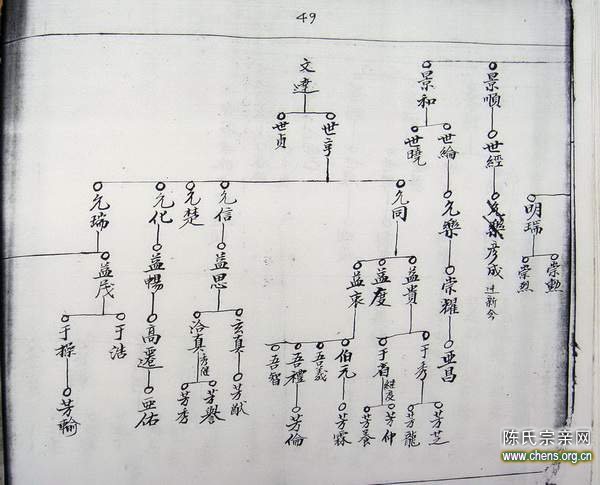 49
景順
世經
彥成
遷新今
亞昌
景和
世綸
世曉
允樂
崇耀
明瑞
崇勳
崇烈
文達
世亨
世貞
允同
允信
允楚
允化
允瑞
益貴
益度
益衷
益思
益暢
益茂
于秀
于有
繼度
伯元
吾義
吾禮
吾智
玄真
洽真
高遷
于浩
于操
芳芝
芳龍
芳仲
芳養
芳霖
芳倫
芳猷
芳譽
芳秀
亞佑
芳輪
陈氏宗亲网
www.chens.org.cn